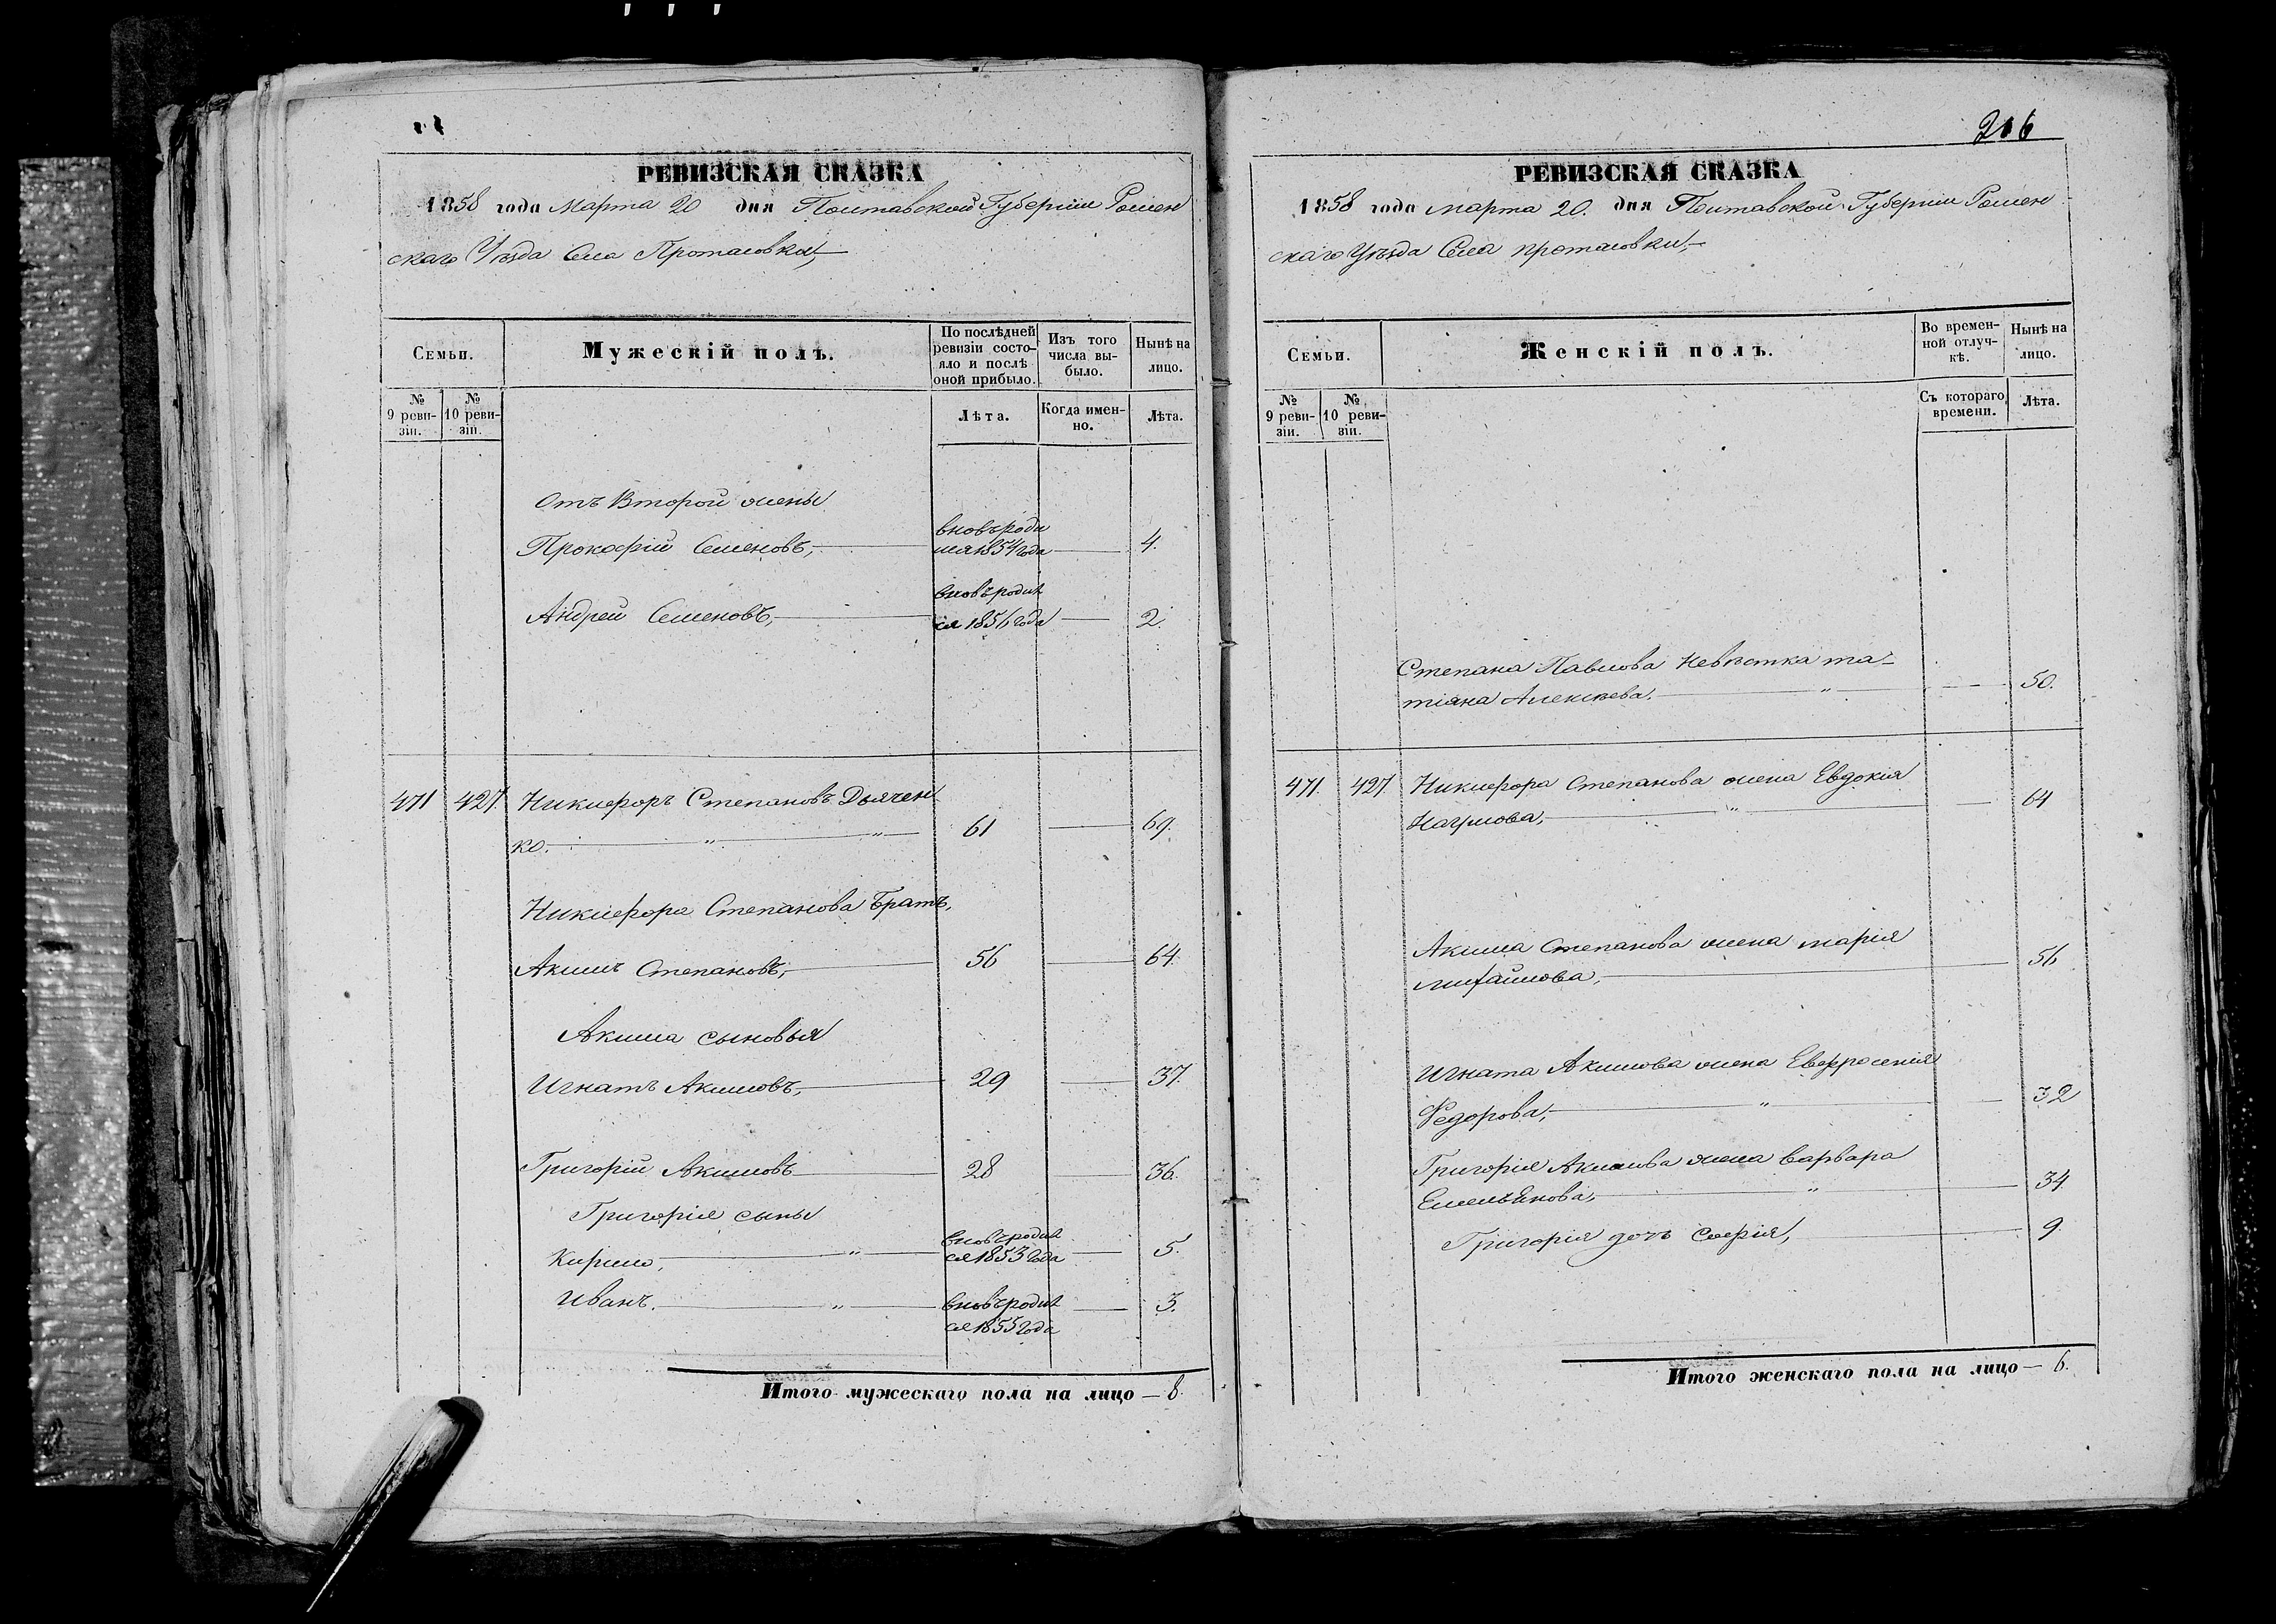 РЕВИЗСКАЯ СКАЗКА
1858 года Марта 20 дня Полтавской Губернии Ромен
скаго Уѣзда Села Протасовки,
Семьи.
Мужескій полъ.
По послѣдней
ревизіи состо-
яло и послѣ
оной прибыло.
Изъ того
числа вы-
было.
Нынѣ на
лицо.
№
9 реви-
зіи.
№
10 реви-
зіи.
Лѣта.
Когда имен-
но.
Лѣта.
Отъ Второй жены
Прокофій Семеновъ, вновь роди
лся 1854 года 4.
Андрей Семеновъ, вновь родил
ся 1856 года 2.
471 427. Никифоръ Степановъ Дьячен
ко. 61 69.
Никифора Степанова Братъ,
Акимъ Степановъ, 56 64.
Акима сыновья
Игнатъ Акимовъ, 29 37.
Григорій Акимовъ 28 36.
Григорія сыны
Кирило, вновь родил
ся 1853 года 5.
Иванъ. вновь родил
ся 1855 года 3.
Итого мужескаго пола на лицо — 8.
216
РЕВИЗСКАЯ СКАЗКА
1858 года марта 20. дня Полтавской Губернии Ромен
скаго Уѣзда Села протасовки,
Семьи.
Женскій полъ.
Во времен-
ной отлуч-
кѣ.
Нынѣ на
лицо.
№
9 реви-
зіи.
№
10 реви-
зіи.
Съ котораго
времени.
Лѣта.
Степана Павлова Невѣстка та-
тіяна Алексѣева. 50.
471. 427. Никифора Степанова жена Евдокия
Наумова, 64
Акима Степанова жена марія
михайлова, 56
Игната Акимова жена Евфросенія
Федорова, 32
Григорія Акимова жена варвара
Емельянова, 34
Григорія дочь Софія, 9.
Итого женскаго пола на лицо — 6.